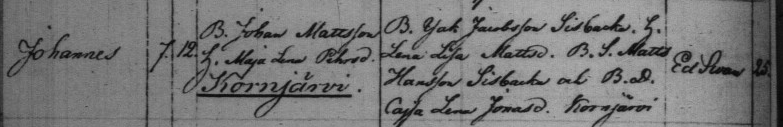 Johannes
7.12.
B. Johan Mattsson
H. Maja Lena Pehrsd.
Kornjärvi.
B. Isak Jacobsson Sisbacka. H.
Lena Lisa Mattsd. B. S. Matts
Hansson Sisbacka och B. D.
Cajsa Lena Jonasd. Kornjärvi
Ed Svan
25.